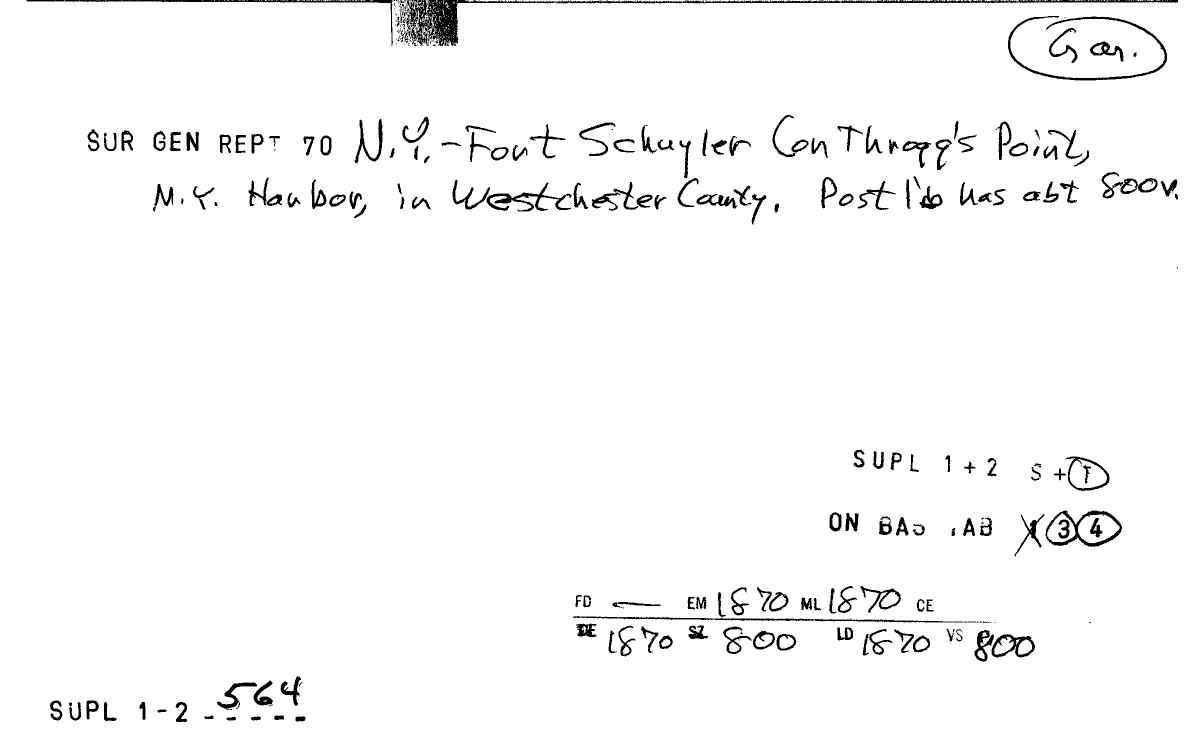 Gar.
SUR GEN REPT 70 N.Y.-Fort Schuyler Con Throgg's Point,
N.Y. Harbor, in Westchester County. Post l'b has abt 800v.
SUPL 1+2 S+T
ON BAS TAB X 3 4
FD — EM 1870 ML 1870 CE
DE 1870 SZ 800 LD 1870 VS 800
SUPL 1-2 564